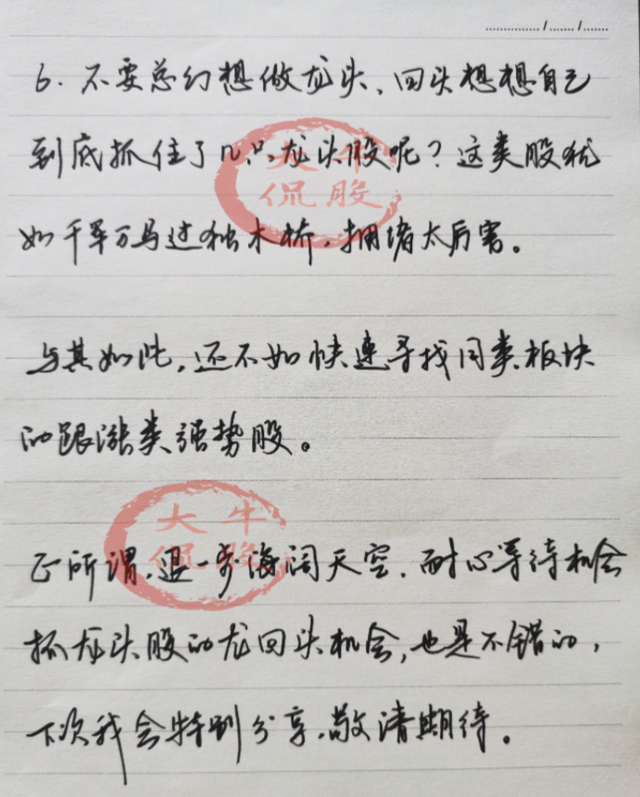 6. 不要总幻想做龙头、回头想想自己
到底抓住了几只龙头股呢？这类股犹
如千军万马过独木桥，拥堵太厉害。
与其如此，还不如快速寻找同类板块
的跟涨类强势股。
正所谓，退一步海阔天空，耐心等待机会
抓龙头股的龙回头机会，也是不错的，
下次我会特别分享，敬请期待。
大牛
侃股
大牛
侃股